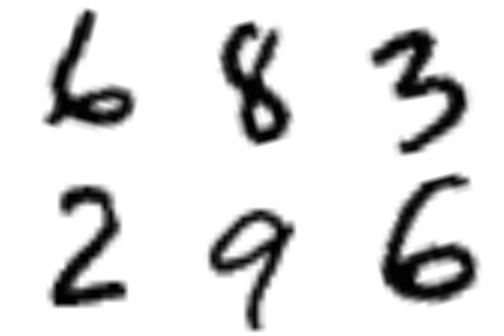 6 8 3
2 9 6